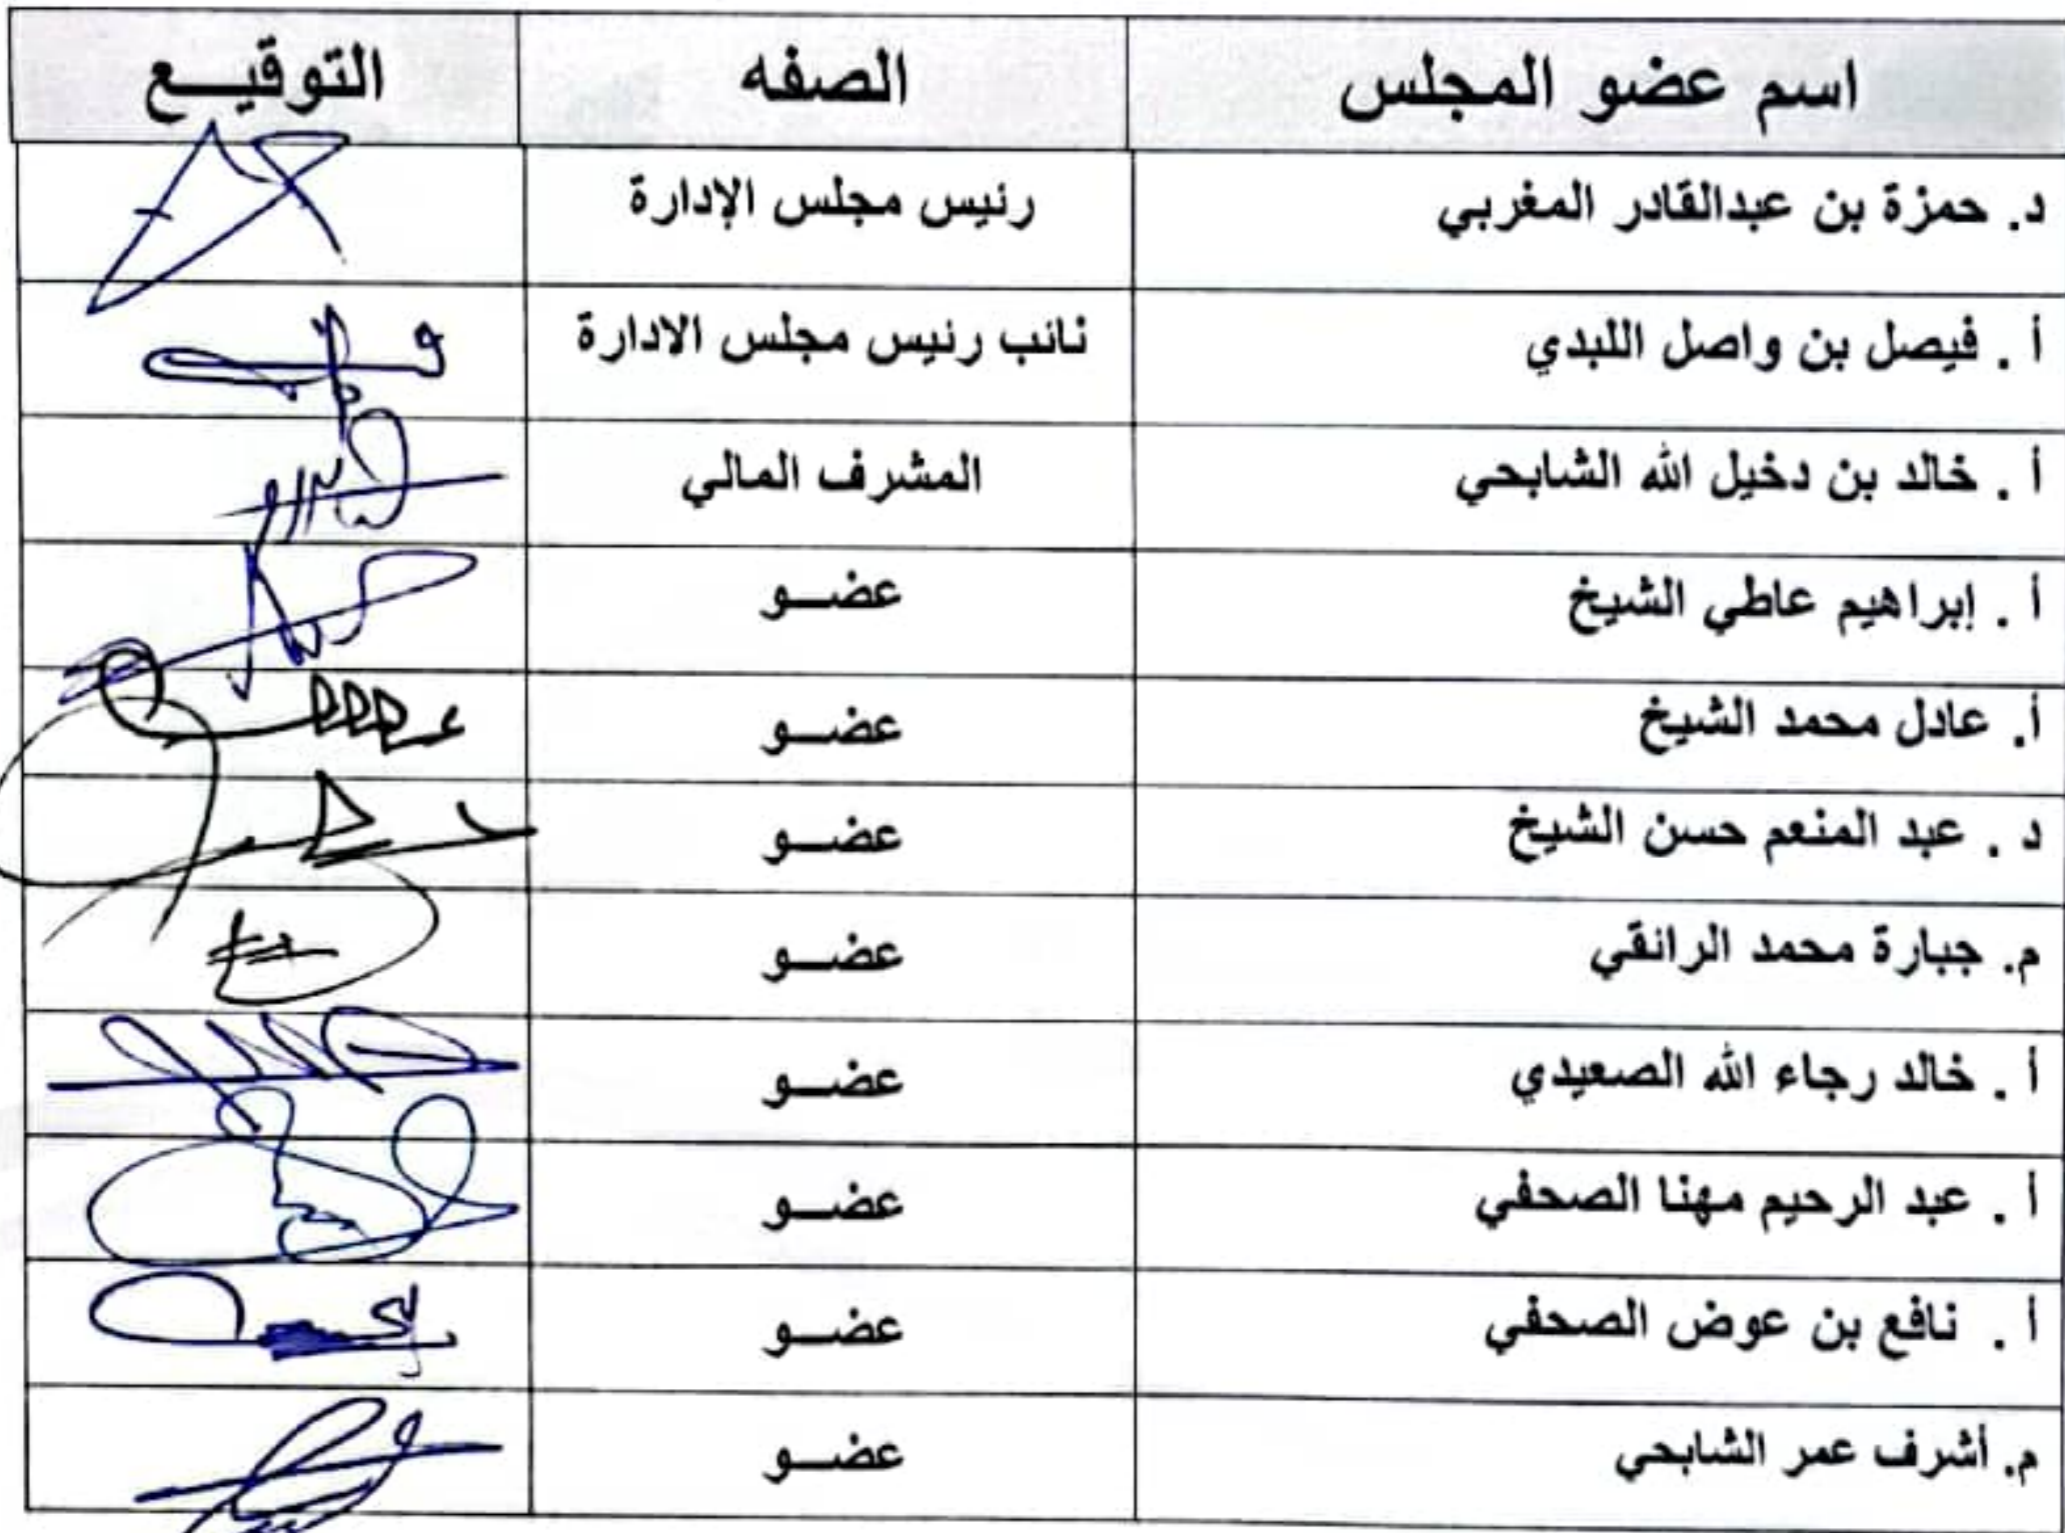 اسم عضو المجلس الصفه التوقيـــع
د. حمزة بن عبدالقادر المغربي رئيس مجلس الإدارة
أ . فيصل بن واصل اللبدي نائب رئيس مجلس الادارة
أ . خالد بن دخيل الله الشابحي المشرف المالي
أ . إبراهيم عاطي الشيخ عضـــو
أ. عادل محمد الشيخ عضـــو
د . عبد المنعم حسن الشيخ عضـــو
م. جبارة محمد الرانقي عضـــو
أ . خالد رجاء الله الصعيدي عضـــو
أ . عبد الرحيم مهنا الصحفي عضـــو
أ . نافع بن عوض الصحفي عضـــو
م. أشرف عمر الشابحي عضـــو